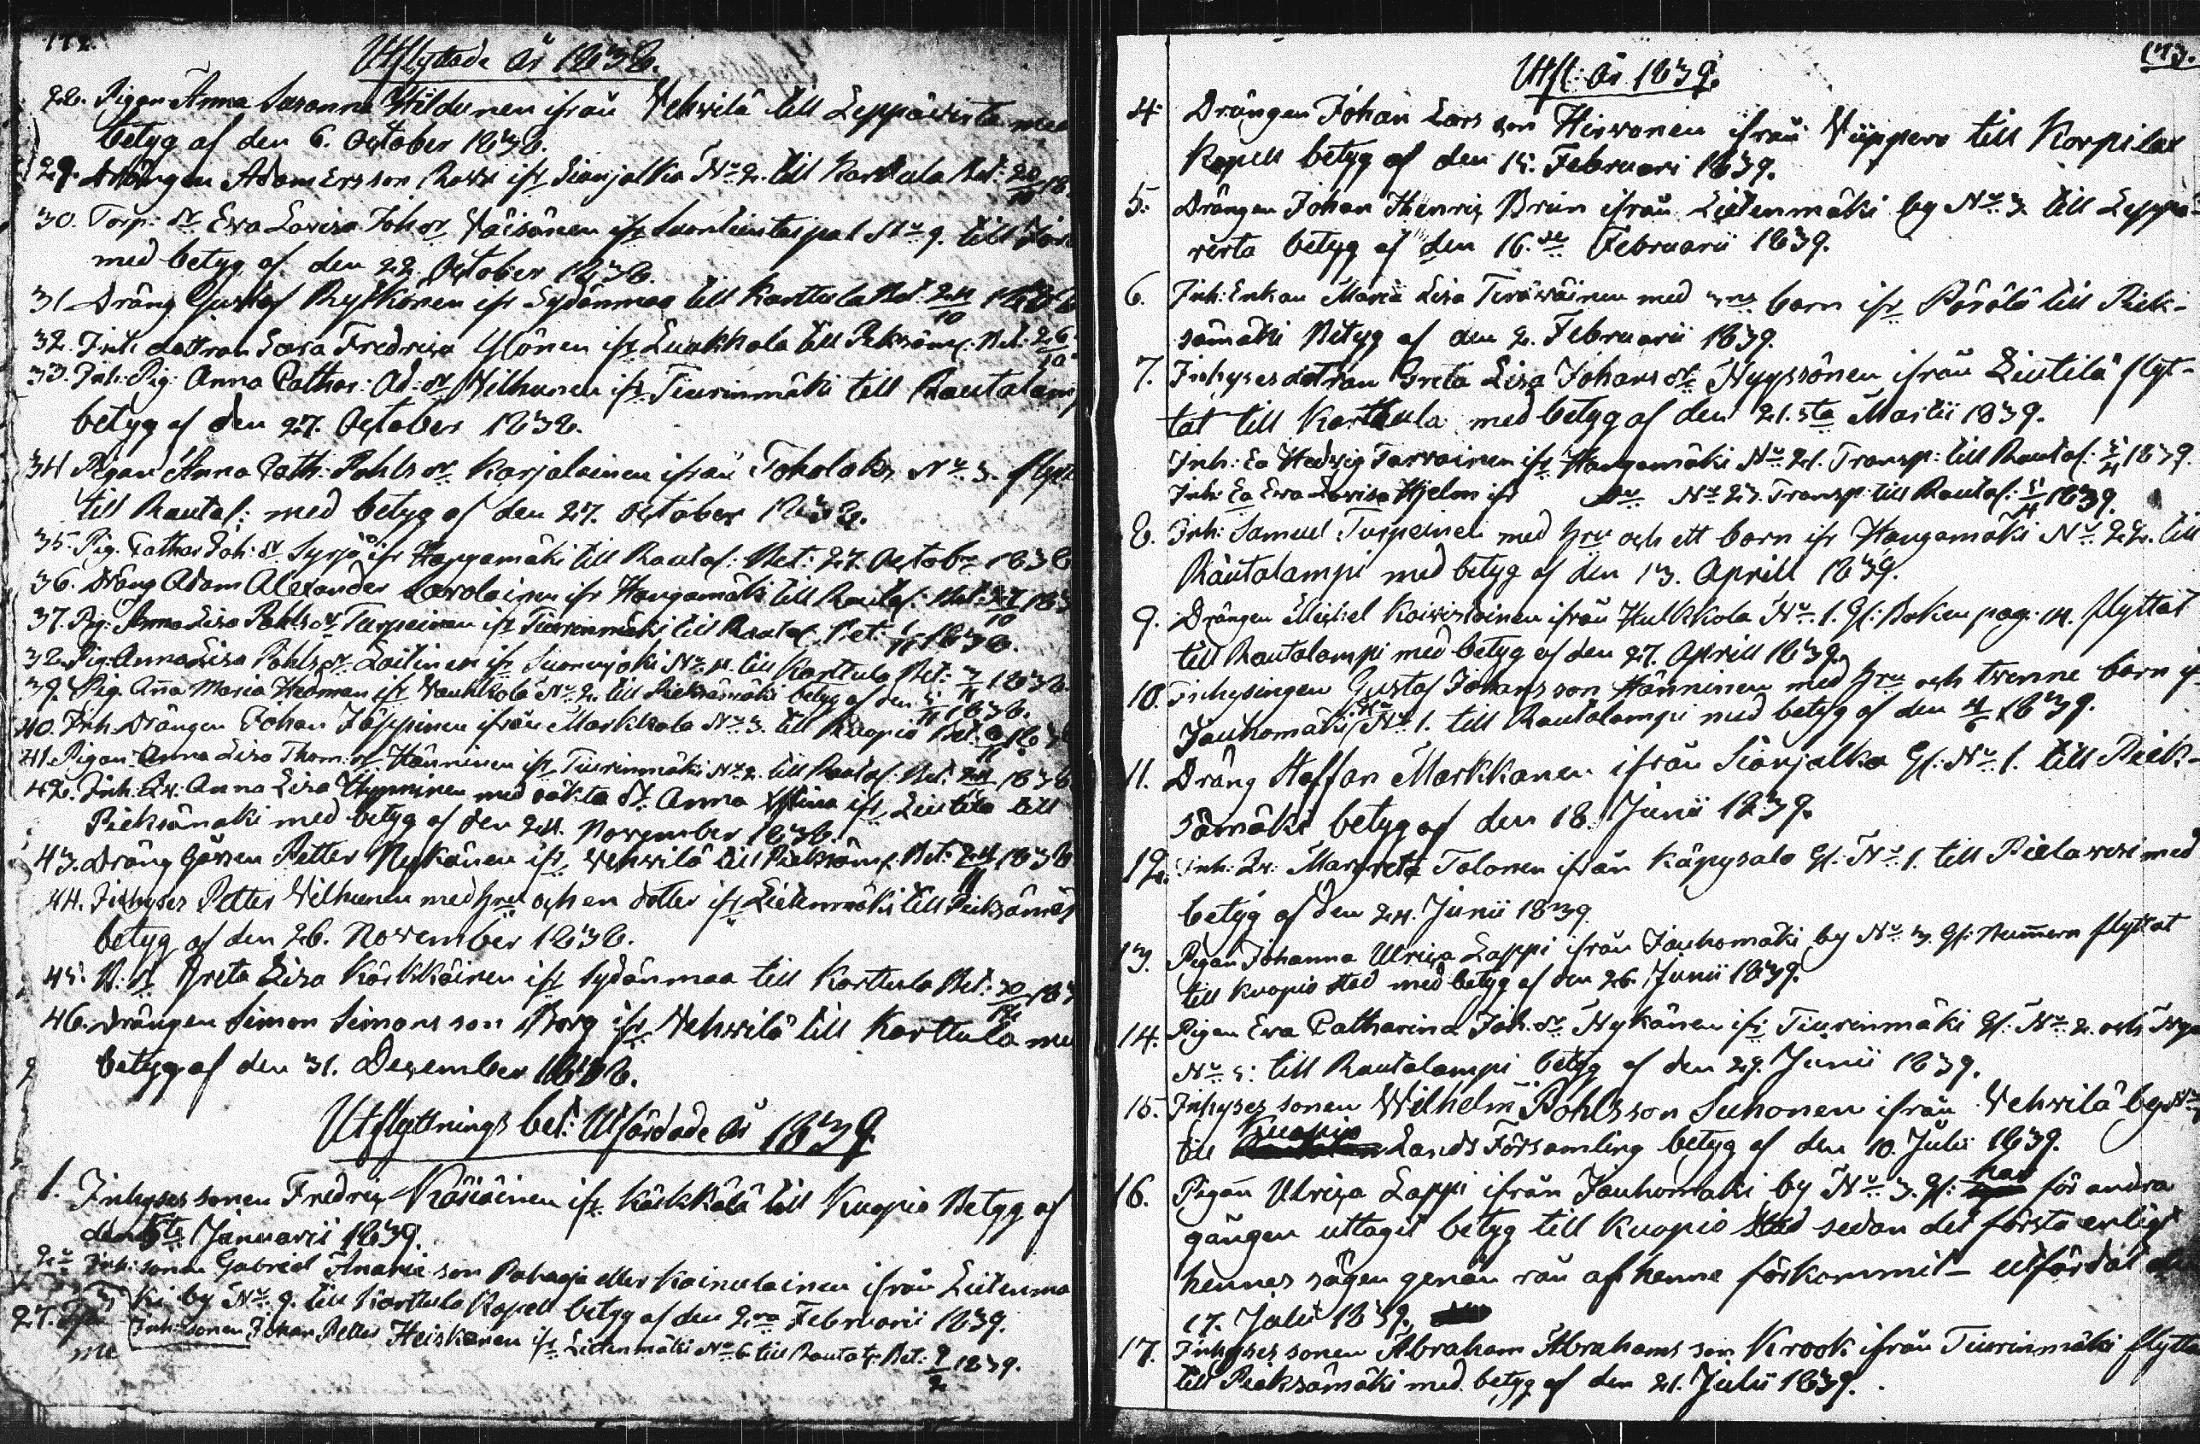 172.
Utflyttade År 1838.
28. Pigan Anna Susanna Hildunen ifrån Wehwilä till Leppäwirta med
betyg af den 6. October 1838.
29. Drängen Adam Ersson ifr Sianjalka No 2. till Karttula Bet: 20/10 18
30. Torp: dr Ewa Lovisa Joh dr Wäisänen ifr No 9. till
med betyg af den 22 October 1838.
31 Dräng Gustaf Rytkönen ifr Sydänmaa till Karttula Bet: 24/10 1838
32. Inh: dottran Fredrica Ylönen ifr Luukkola till Pieksäm: Bet: 26/10
33. Inh: Pig: Anna Cathar: Ad: dr Wilhunen ifr Tiurinmäki till Rautalam
betyg af den 27. October 1838.
34 Pigan Anna Cath: Pohls dr Karjalainen ifrån Toholaks No 3. flytt
till Rautal: med betyg af den 27. October 1838.
35. Pig. Cathar Joh: dr Syrjä ifr Hangamäki till Rautal: Bet: 27. Octobr 1838
36. Dräng Adam Alexander Sawolainen ifr Hangamäki till Rautal: Bet: 27/10 183
37. Pig: Anna Lisa Pohls dr Turpeinen ifr Tiurinmäki till Rautal. Bet: 1/11 1838.
38. Pig: Anna Lisa Pohls dr Laitinen ifr Suonenjoki No 4. till Karttula Bet: 3/11 1838.
39. Pig. Aña Maria Hedman ifr Wauhkola No 2. till Pieksämäki betyg af den 5/11 1838.
40. Inh. Drängen Johan Jäppinen ifrån Markkala No 3. till Kuopio Bet: 9/11 183
41. Pigan Anna Lisa Thom: dr Hänninen ifr Tiurinmäki No 2. till Rautal: Bet: 24/11 1838
42. Inh: Ea: Anna Lisa Hynninen med oäkta dr Anna Stina ifr Liutila till
Pieksämäki med betyg af den 24. November 1838.
43. Dräng Gåssen Petter Nykänen ifr Wehwilä till Pieksäm: Bet: 24/11 1838
44. Inhyses Petter Wilhunen med hru och en dotter ifr Lietenmäki till Pieksämäk
betyg af den 26. November 1838.
45. B: dr Greta Lisa Kärkkäinen ifr Sydänmaa till Karttula Bet: 30/12 183
46. Drängen Simon Simons son Borg ifr Wehwilä till Karttula med
betyg af den 31. December 1838.
Utflyttnings bet: Utfärdade År 1839.
1. Inhyses sonen Fredric Räsäinen ifr Kärkkälä till Kuopio Betyg af
den 5ta Januarii 1839.
2. Inh: sonen Gabriel Ananie son Pahaoja eller Kainulainen ifrån Lietenmä
ki by No 9. till Karttula Kapell betyg af den 2ra Februarii 1839.
3 Inh: sonen Johan Petter Heiskanen ifr Lietenmäki No 6 till Rautal: Bet: 9/2 1839.
173.
Utfl: År 1839.
4. Drängen Johan Lars son Hirwonen ifrån Wüppero till Korpilax
Kapell betyg af den 15. Februari 1839.
5. Drängen Johan Henric Brun ifrån Lietenmäki by No 3. till Leppä-
wirta betyg af den 16.de Februarii 1839.
6. Inh: Enkan Maria Lisa Teräwäinen med 3ne barn ifr Pörölä till Piek-
sämäki Betyg af den 2. Februarii 1839.
7. Inhyses dottran Greta Lisa Johans dr Nyyssönen ifrån Liutilä flyt-
tat till Karttula med betyg af den 21.sta Martii 1839.
Inh: Ea Hedvig Tarvainen ifr Hangamäki No 21. Transp: till Rautal: 5/4 1839.
Inh: Ea Ewa Lovisa Hjelm ifr Do No 23. Transp: till Rautal: 5/4 1839.
8. Inh: Samuel Turpeinen med hru och ett barn ifr Hangamäki No 22. till
Rautalampi med betyg af den 13. Aprill 1839.
9. Drängen Michel Kaivistoinen ifrån Hulkkola No 1. Gl: Boken pag: 14. flyttat
till Rautalampi med betyg af den 27. Aprill 1839.
10. Inhysingen Gustaf Johans son Hänninen med hru och twenne barn if
Jauhomäki No 1. till Rautalampi med betyg af den 4/6 1839.
11. Dräng Staffan Markkanen ifrån Sianjalka Gl: No 1. till Piek-
sämäki betyg af den 18. Junii 1839.
12. Inh: Ea: Margreta Tolonen ifrån Käpysalo Gl: No 1. till Pielavesi med
betyg af den 24. Junii 1839.
13. Pigan Johanna Ulrica Lappi ifrån Jauhomäki by No 3. Gl: Numern flyttat
till Kuopio stad med betyg af den 26. Junii 1839.
14. Pigan Ewa Catharina Joh: dr Nykänen ifr Tiurinmäki Gl: No 2. och Nya
No 5: till Rautalampi betyg af den 29. Junii 1839.
15. Inhyses sonen Wilhelm Pohls son Suhonen ifrån Wehwilä by No
till Kuopio Lands Församling betyg af den 10. Julii 1839.
16. Pigan Ulrica Lappi ifrån Jauhomäki by No 3. Gl: har för andra
gången uttagit betyg till Kuopio stad sedan det första enligt
hennes sägen genom rån af henne förkommit – utfärdat den
17. Julii 1839.
17. Inhyses sonen Abraham Abrahams son Krook ifrån Tiurinmäki flyttat
till Pieksämäki med betyg af den 21. Julii 1839.